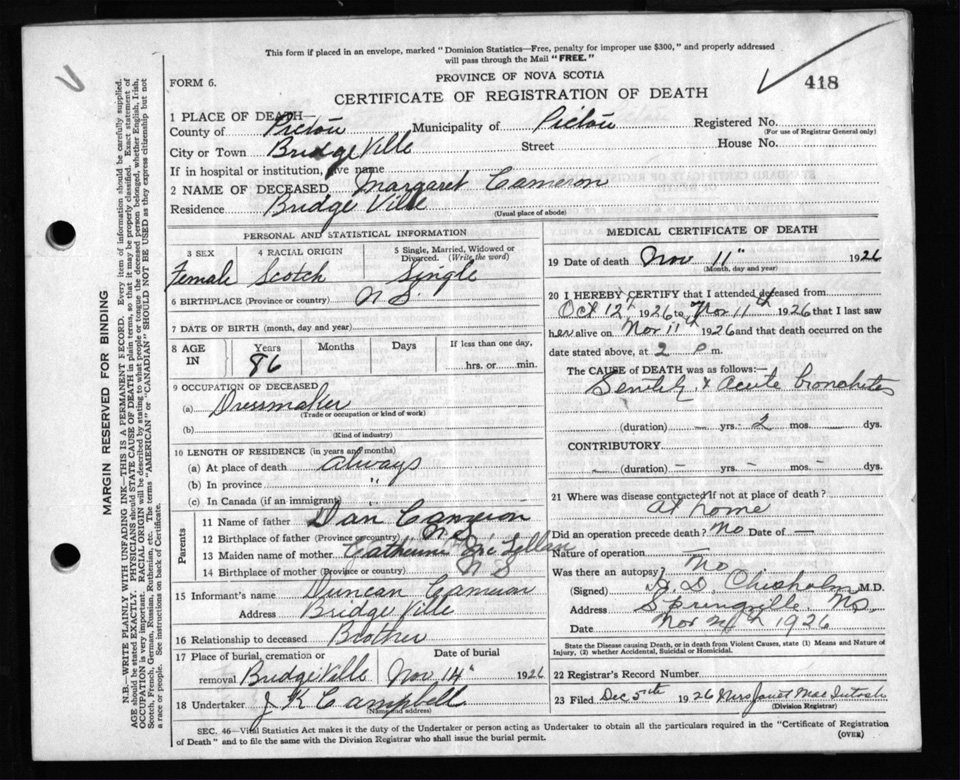 This form if placed in an envelope, marked "Dominion Statistics—Free, penalty for improper use $300," and properly addressed
will pass through the Mail "FREE."
PROVINCE OF NOVA SCOTIA
FORM 6.
418
CERTIFICATE OF REGISTRATION OF DEATH
1 PLACE OF DEATH—
County of Pictou Municipality of Pictou Registered No.
(For use of Registrar General only)
City or Town BridgeVille Street House No.
If in hospital or institution, give name
2 NAME OF DECEASED Margaret Cameron
Residence Bridge Ville
(Usual place of abode)
PERSONAL AND STATISTICAL INFORMATION
3 SEX 4 RACIAL ORIGIN 5 Single, Married, Widowed or
Divorced. (Write the word)
Female Scotch Single
6 BIRTHPLACE (Province or country) N S.
7 DATE OF BIRTH (month, day and year)
8 AGE IN Years Months Days If less than one day,
86 hrs. or min.
9 OCCUPATION OF DECEASED
(a) Dressmaker
(Trade or occupation or kind of work)
(b)
(Kind of industry)
10 LENGTH OF RESIDENCE (in years and months)
(a) At place of death always
(b) In province "
(c) In Canada (if an immigrant) "
Parents
11 Name of father Dan Cameron
12 Birthplace of father (Province or country) N S
13 Maiden name of mother Catherine McLellan
14 Birthplace of mother (Province or country) N S
15 Informant's name Duncan Cameron
Address Bridge Ville
16 Relationship to deceased Brother
17 Place of burial, cremation or Date of burial
removal BridgeVille Nov 14" 1926
18 Undertaker J K Campbell
(Name and address)
MEDICAL CERTIFICATE OF DEATH
19 Date of death Nov 11" 1926
(Month, day and year)
20 I HEREBY CERTIFY that I attended deceased from
Oct 12th 1926 to Nov 11th 1926 that I last saw
her alive on Nov 11th 1926 and that death occurred on the
date stated above, at 2 p m.
The CAUSE of DEATH was as follows:—
Senility & acute bronchitis
(duration) — yrs. 2 mos. — dys.
CONTRIBUTORY
— (duration) — yrs. — mos. — dys.
21 Where was disease contracted if not at place of death?
at home
Did an operation precede death? No Date of —
Nature of operation —
Was there an autopsy? No
(Signed) Chisholm M.D.
Address Springville NS.
Date Nov 1926
State the Disease causing Death, or in death from Violent Causes, state (1) Means and Nature of
Injury, (2) whether Accidental, Suicidal or Homicidal.
22 Registrar's Record Number
23 Filed Dec 5th 1926 Mrs Janet MacIntosh
(Division Registrar)
SEC. 46—Vital Statistics Act makes it the duty of the Undertaker or person acting as Undertaker to obtain all the particulars required in the "Certificate of Registration
of Death" and to file the same with the Division Registrar who shall issue the burial permit.
(OVER)
MARGIN RESERVED FOR BINDING
N.B.—WRITE PLAINLY WITH UNFADING INK—THIS IS A PERMANENT RECORD. Every item of information should be carefully supplied.
AGE should be stated EXACTLY. PHYSICIANS should STATE CAUSE OF DEATH in plain terms, so that it may be properly classified. Exact statement of
OCCUPATION is very important. RACIAL ORIGIN will be described by stating to what people or tongue the deceased person belonged, whether English, Irish,
Scotch, French, German, Russian, Ruthenian, etc. The terms "AMERICAN" or "CANADIAN" SHOULD NOT BE USED as they express citizenship but not
a race or people. See instructions on back of Certificate.